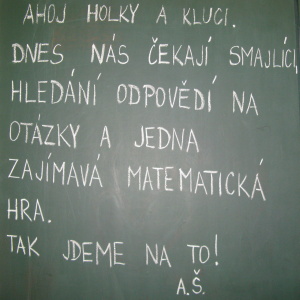 AHOJ HOLKY A KLUCI.
DNES NÁS ČEKAJÍ SMAJLÍCI,
HLEDÁNÍ ODPOVĚDÍ NA
OTÁZKY A JEDNA
ZAJÍMAVÁ MATEMATICKÁ
HRA.
TAK JDEME NA TO!
A.Š.